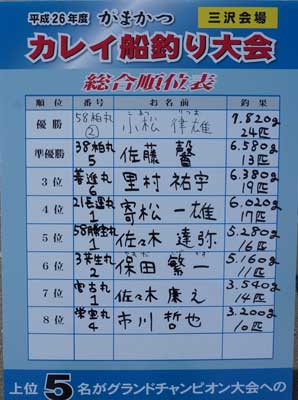 平成26年度 がまかつ 三沢会場
カレイ船釣り大会
総合順位表
順位 番号 お名前 釣果
優勝 58柏丸 ② 小松 律雄 7.820g 24匹
準優勝 38柏丸 5 佐藤 馨 6.580g 13匹
3位 善進丸 6 里村 祐宇 6.380g 19匹
4位 21長運丸 1 寄松 一雄 6.020g 17匹
5位 1 佐々木 達弥 5.280g 16匹
6位 2 保田 繁一 5.160g 11匹
7位 宮古丸 1 佐々木 康え 3.540g 14匹
8位 栄宝丸 4 市川 哲也 3.200g 10匹
上位5名がグランドチャンピオン大会への